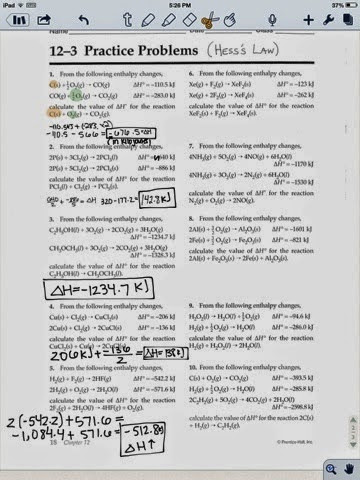 iPad
5:26 PM
37%
12–3 Practice Problems (HESS'S LAW)
1. From the following enthalpy changes,
C(s) + ½O₂(g) → CO(g) ΔH° = −110.5 kJ
CO(g) + ½O₂(g) → CO₂(g) ΔH° = −283.0 kJ
calculate the value of ΔH° for the reaction
C(s) + O₂(g) → CO₂(g).
2. From the following enthalpy changes,
2P(s) + 3Cl₂(g) → 2PCl₃(l)
2P(s) + 5Cl₂(g) → 2PCl₅(s) ΔH° = −886 kJ
calculate the value of ΔH° for the reaction
PCl₃(l) + Cl₂(g) → PCl₅(s).
142.8 KJ
3. From the following enthalpy changes,
C₂H₅OH(l) + 3O₂(g) → 2CO₂(g) + 3H₂O(l)
ΔH° = −1234.7 kJ
CH₃OCH₃(l) + 3O₂(g) → 2CO₂(g) + 3H₂O(l)
ΔH° = −1328.3 kJ
calculate the value of ΔH° for the reaction
C₂H₅OH(l) → CH₃OCH₃(l).
ΔH=−1234.7 KJ
4. From the following enthalpy changes,
Cu(s) + Cl₂(g) → CuCl₂(s) ΔH° = −206 kJ
2Cu(s) + Cl₂(g) → 2CuCl(s) ΔH° = −136 kJ
calculate the value of ΔH° for the reaction
CuCl₂(s) + Cu(s) → 2CuCl(s).
5. From the following enthalpy changes,
H₂(g) + F₂(g) → 2HF(g) ΔH° = −542.2 kJ
2H₂(g) + O₂(g) → 2H₂O(l) ΔH° = −571.6 kJ
calculate the value of ΔH° for the reaction
2F₂(g) + 2H₂O(l) → 4HF(g) + O₂(g).
2(−542.2)+571.6 =
−1,084.4 + 571.6 =
−512.8
ΔH↑
6. From the following enthalpy changes,
Xe(g) + F₂(g) → XeF₂(s) ΔH° = −123 kJ
Xe(g) + 2F₂(g) → XeF₄(s) ΔH° = −262 kJ
calculate the value of ΔH° for the reaction
XeF₂(s) + F₂(g) → XeF₄(s).
7. From the following enthalpy changes,
4NH₃(g) + 5O₂(g) → 4NO(g) + 6H₂O(l)
ΔH° = −1170 kJ
4NH₃(g) + 3O₂(g) → 2N₂(g) + 6H₂O(l)
ΔH° = −1530 kJ
calculate the value of ΔH° for the reaction
N₂(g) + O₂(g) → 2NO(g).
8. From the following enthalpy changes,
2Al(s) + 3/2O₂(g) → Al₂O₃(s) ΔH° = −1601 kJ
2Fe(s) + 3/2O₂(g) → Fe₂O₃(s) ΔH° = −821 kJ
calculate the value of ΔH° for the reaction
2Al(s) + Fe₂O₃(s) → 2Fe(s) + Al₂O₃(s).
9. From the following enthalpy changes,
H₂O₂(l) → H₂O(l) + ½O₂(g) ΔH° = −94.6 kJ
H₂(g) + ½O₂(g) → H₂O(l) ΔH° = −286.0 kJ
calculate the value of ΔH° for the reaction
H₂(g) + O₂(g) → H₂O₂(l).
10. From the following enthalpy changes,
C(s) + O₂(g) → CO₂(g) ΔH° = −393.5 kJ
H₂(g) + ½O₂(g) → H₂O(l) ΔH° = −285.8 kJ
2C₂H₂(g) + 5O₂(g) → 4CO₂(g) + 2H₂O(l)
ΔH° = −2598.8 kJ
calculate the value of ΔH° for the reaction 2C(s)
+ H₂(g) → C₂H₂(g).
Chapter 12
© Prentice-Hall, Inc.